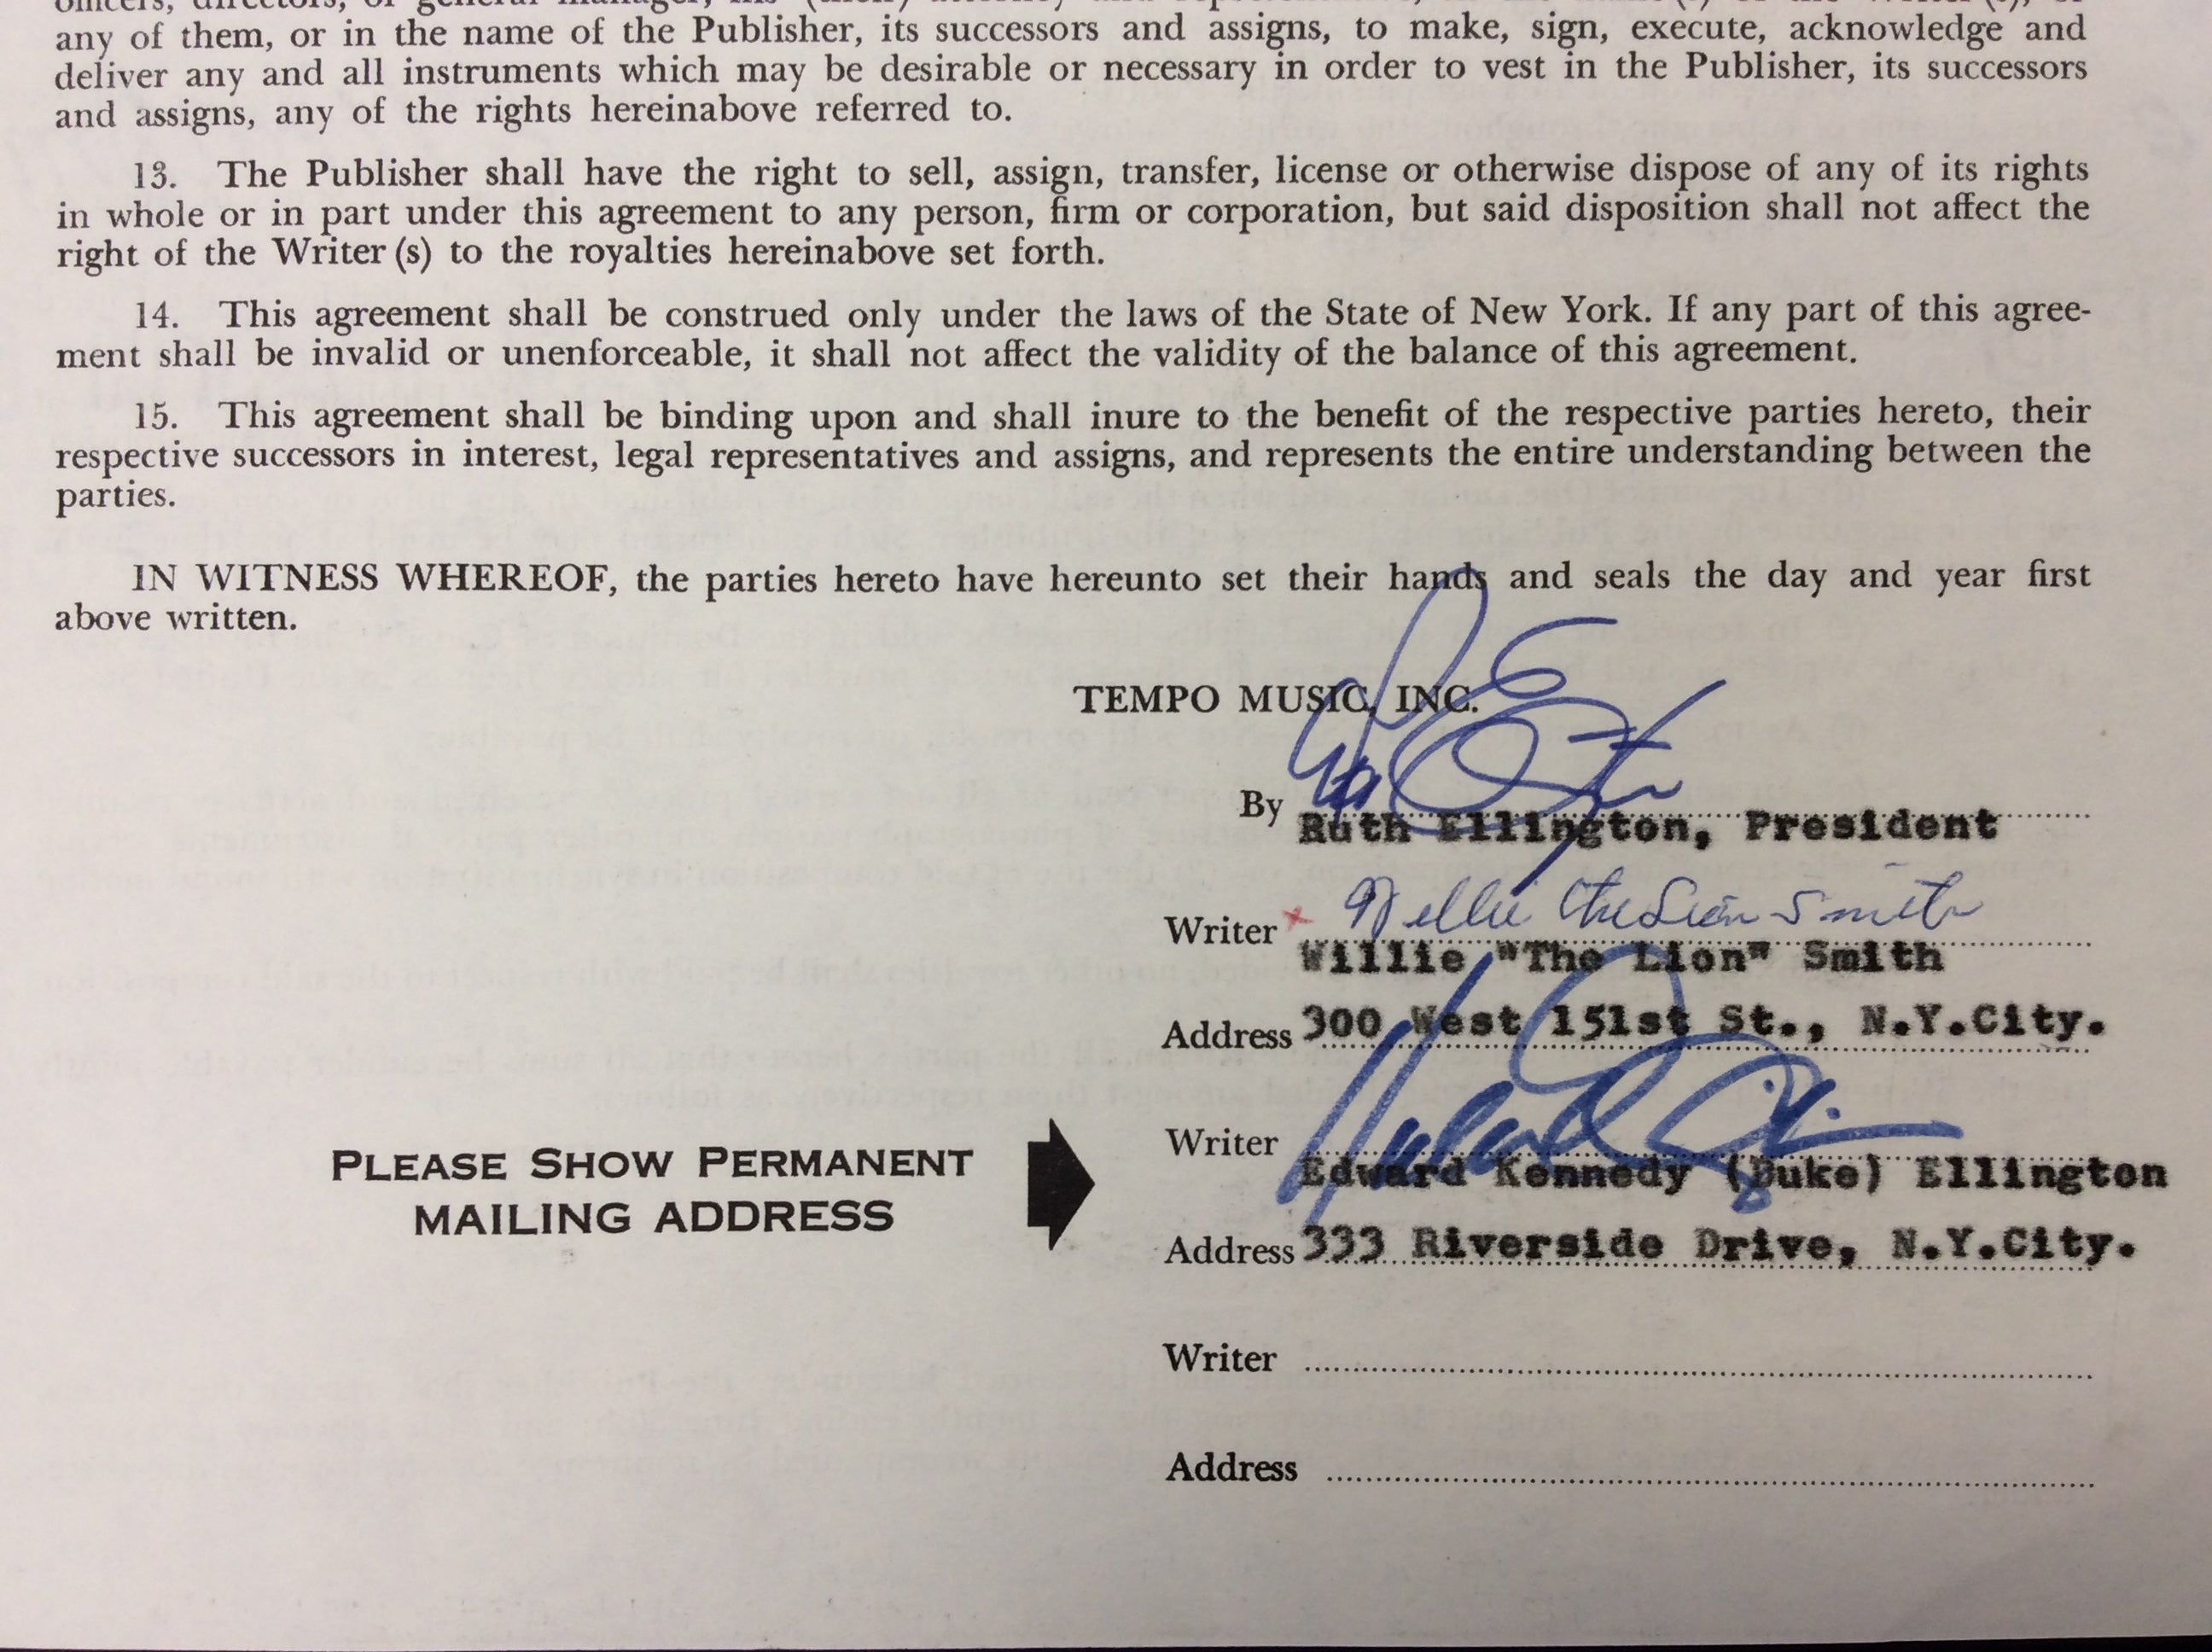 any of them, or in the name of the Publisher, its successors and assigns, to make, sign, execute, acknowledge and
deliver any and all instruments which may be desirable or necessary in order to vest in the Publisher, its successors
and assigns, any of the rights hereinabove referred to.
13. The Publisher shall have the right to sell, assign, transfer, license or otherwise dispose of any of its rights
in whole or in part under this agreement to any person, firm or corporation, but said disposition shall not affect the
right of the Writer (s) to the royalties hereinabove set forth.
14. This agreement shall be construed only under the laws of the State of New York. If any part of this agree-
ment shall be invalid or unenforceable, it shall not affect the validity of the balance of this agreement.
15. This agreement shall be binding upon and shall inure to the benefit of the respective parties hereto, their
respective successors in interest, legal representatives and assigns, and represents the entire understanding between the
parties.
IN WITNESS WHEREOF, the parties hereto have hereunto set their hands and seals the day and year first
above written.
TEMPO MUSIC, INC.
By
Ruth Ellington, President
Writer x Willie The Lion Smith
Willie "The Lion" Smith
Address 300 West 151st St., N.Y.City.
PLEASE SHOW PERMANENT
MAILING ADDRESS
Writer
Edward Kennedy (Duke) Ellington
Address 333 Riverside Drive, N.Y.City.
Writer
Address